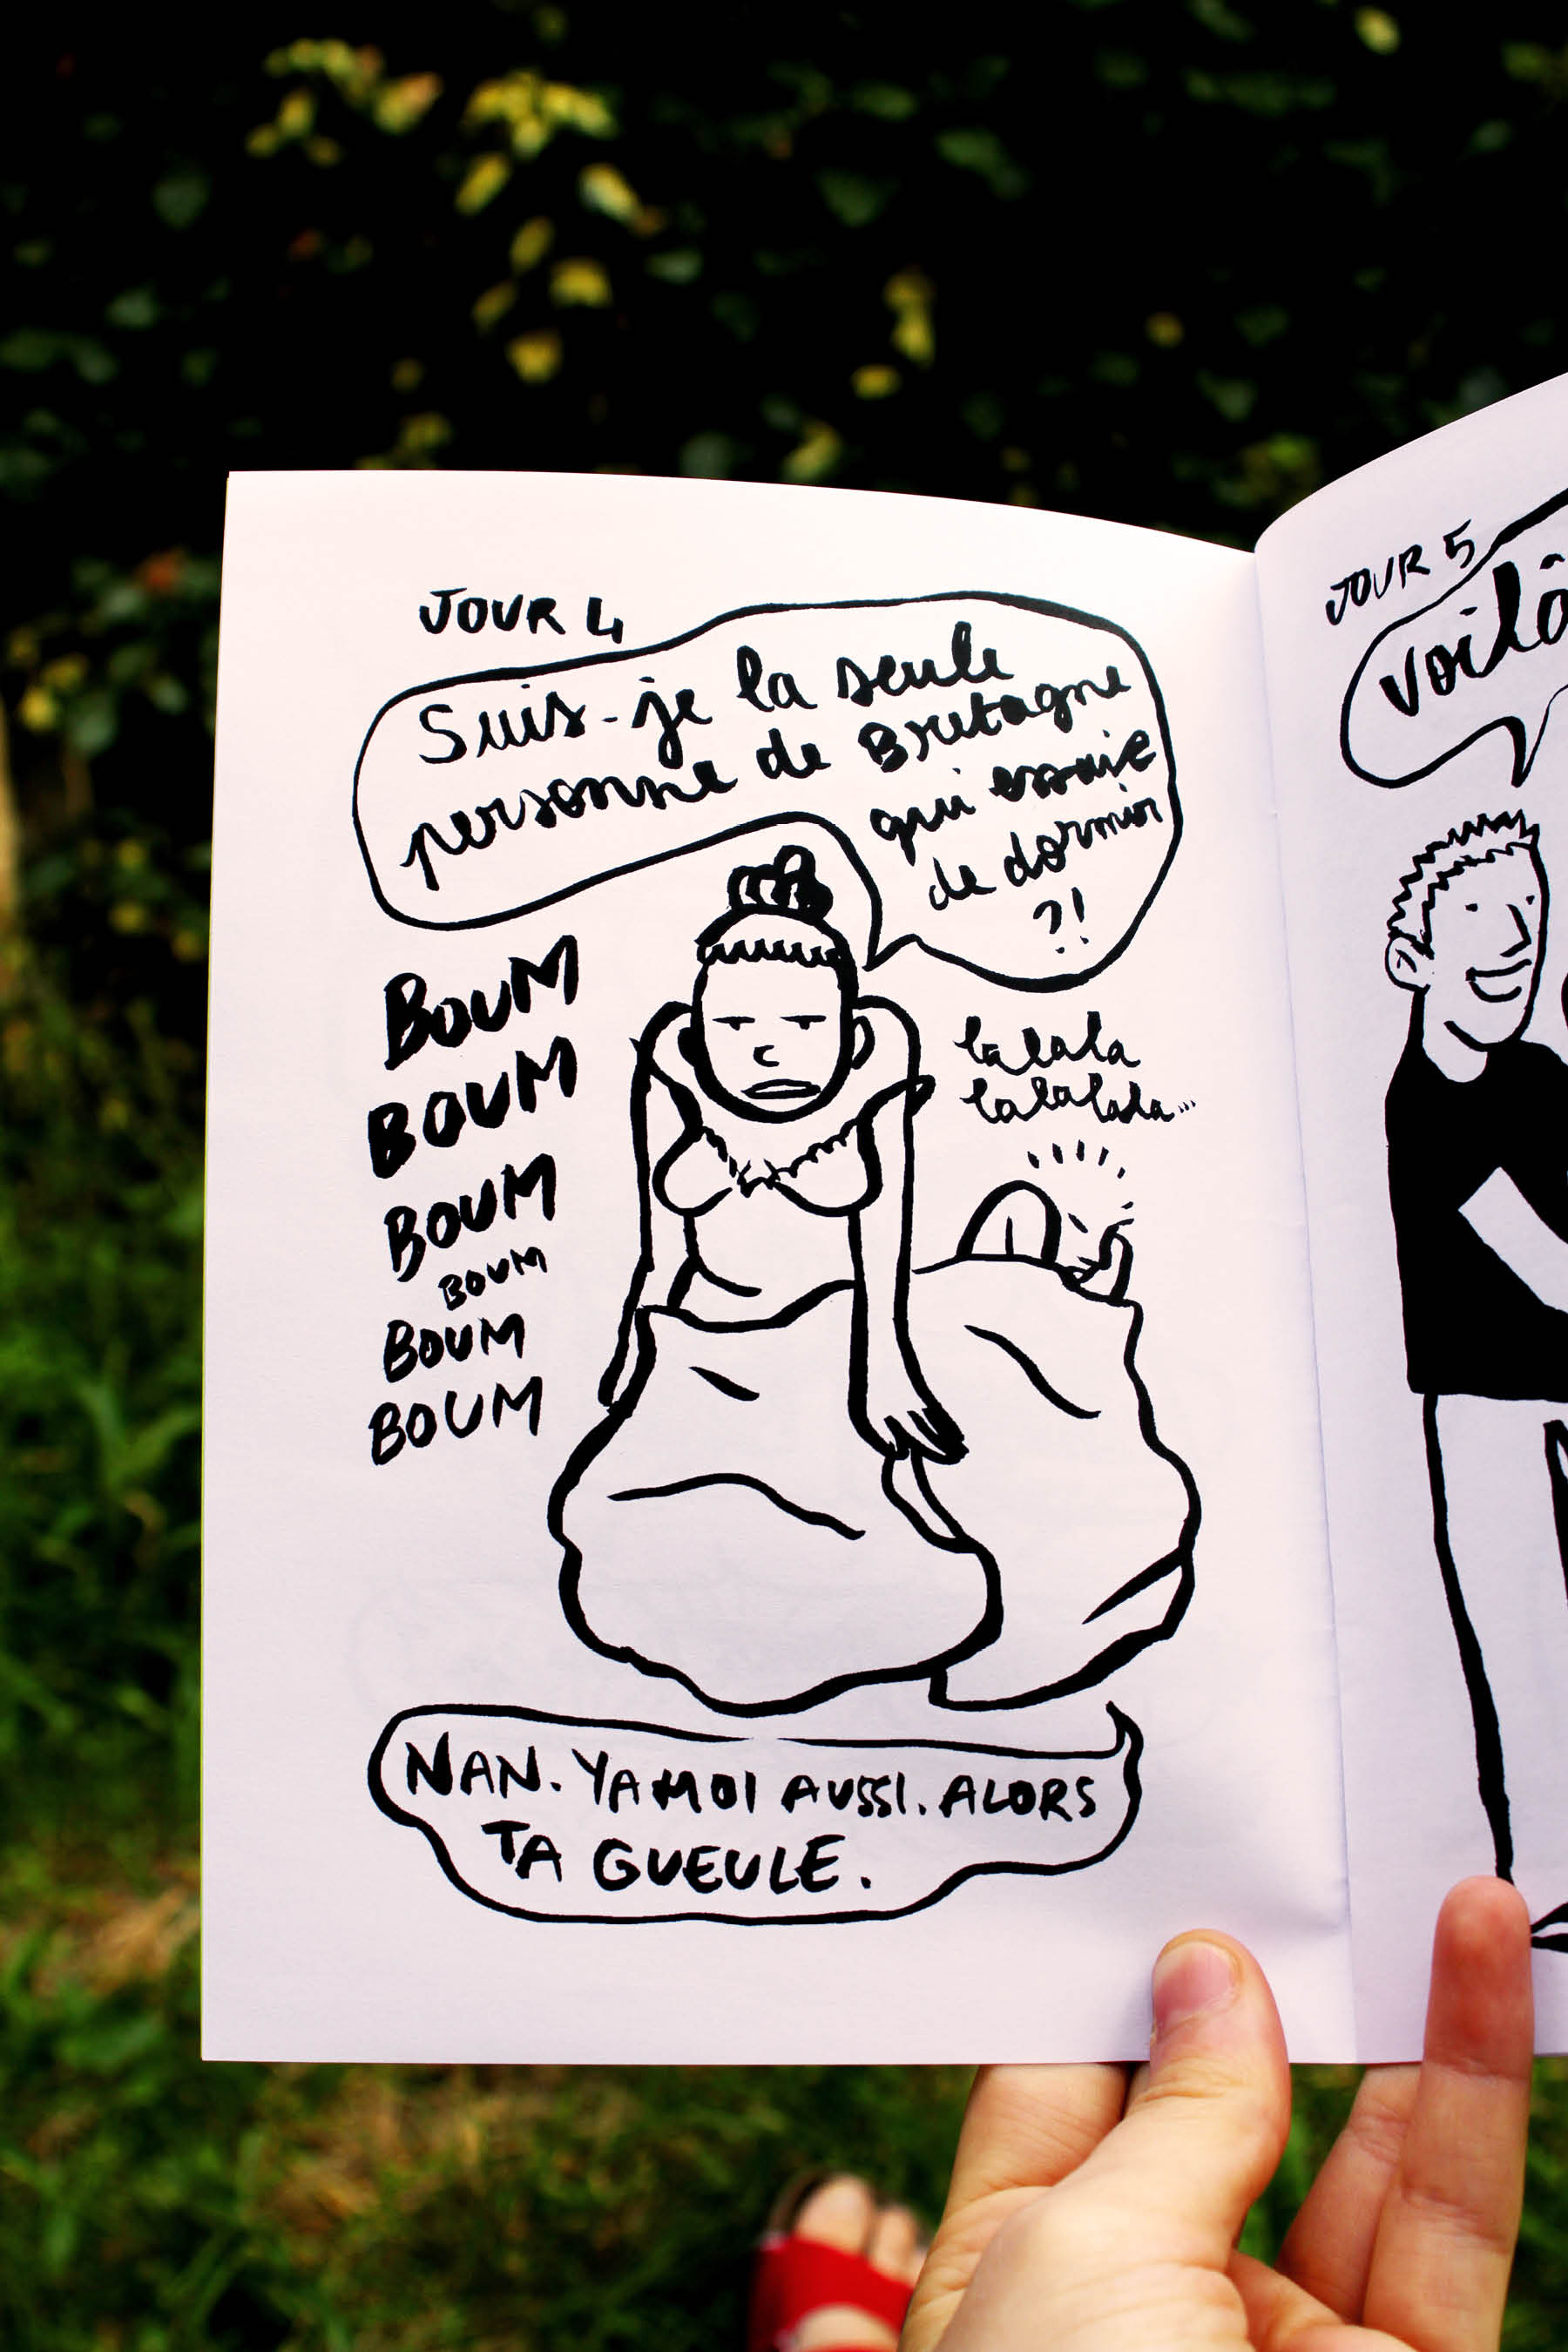 JOUR 4
Suis-je la seule
personne de Bretagne
qui essaie
de dormir
?!
BOUM
BOUM
BOUM
BOUM
BOUM
BOUM
la la la
la la la la...
NAN. YA MOI AUSSI. ALORS
TA GUEULE.
JOUR 5
Voilà